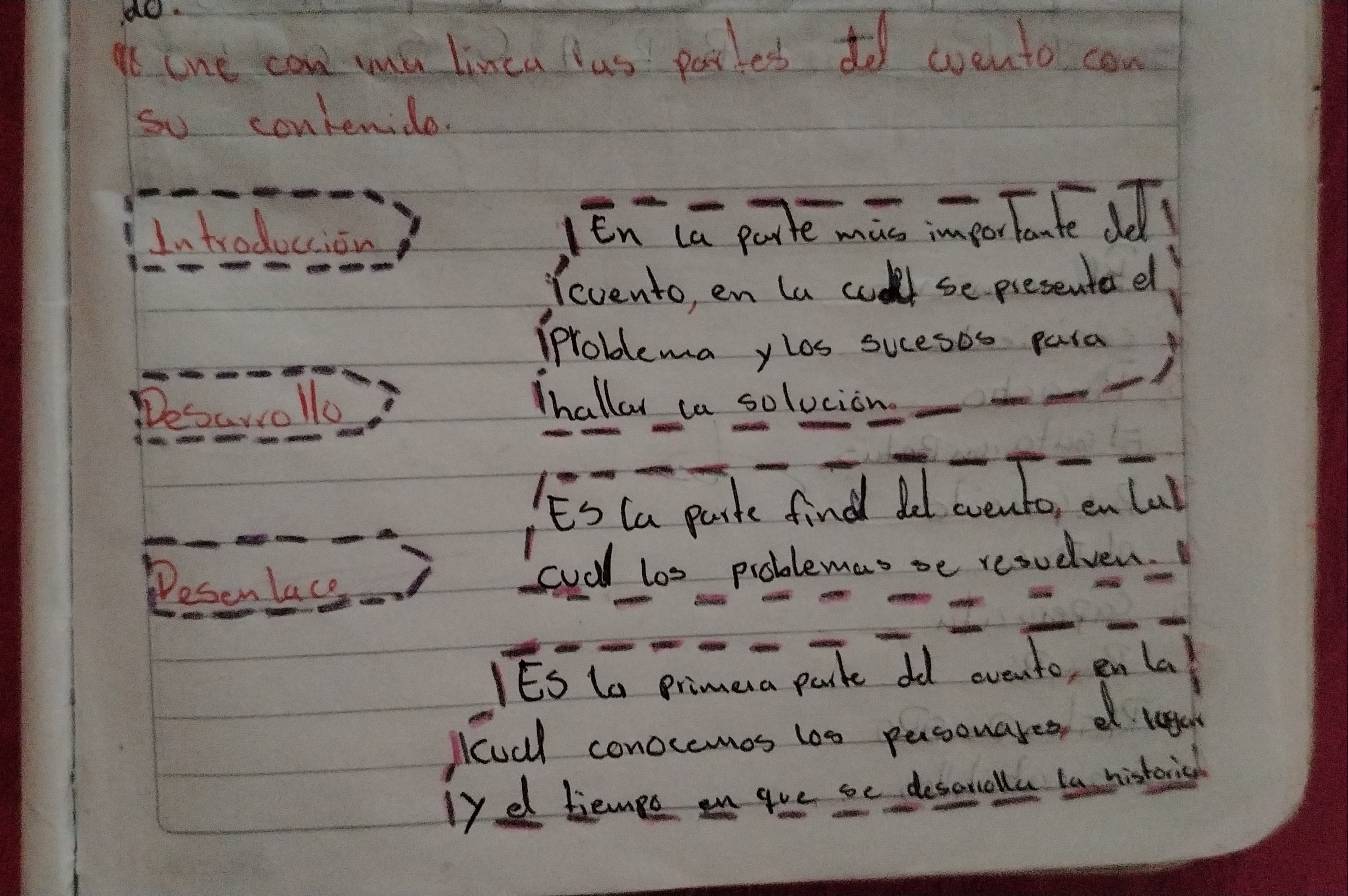 do.
une con una linea las partes del cuento con
su contenido.
Introducción
En la parte más importante del
cuento, en la cual se presenta el
problema y los sucesos para
hallar la solución.
Desarrollo
Es la parte final del cuento, en la
cual los problemas se resuelven.
Desenlace
Es la primera parte del cuento, en la
cual conocemos los personajes, el lugar
y el tiempo en que se desarrolla la historia